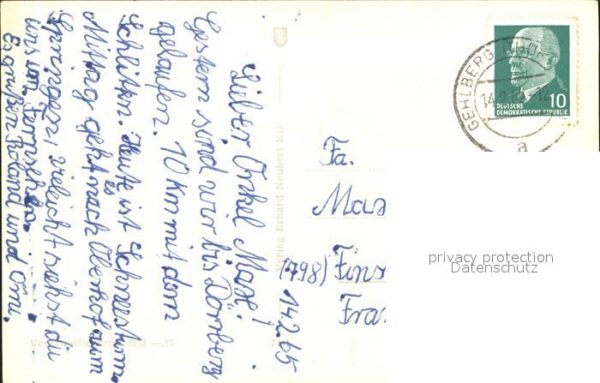 Lieber Onkel Max!
14.2.65
Gestern sind wir bis Dörrberg
gelaufen. 10 km mit dem
Schlitten. Heute ist Schneesturm.
Mittag geht es nach Oberhof zum
Springen, vieleicht siehst du
uns im Fernsehen.
Es grüßen Roland und Omi.
Verlag Erhard Neubert KG
GEHLBERG
a
DEUTSCHE
DEMOKRATISCHE REPUBLIK
10
Fa.
Max
(798) Fins
Fra
privacy protection
Datenschutz